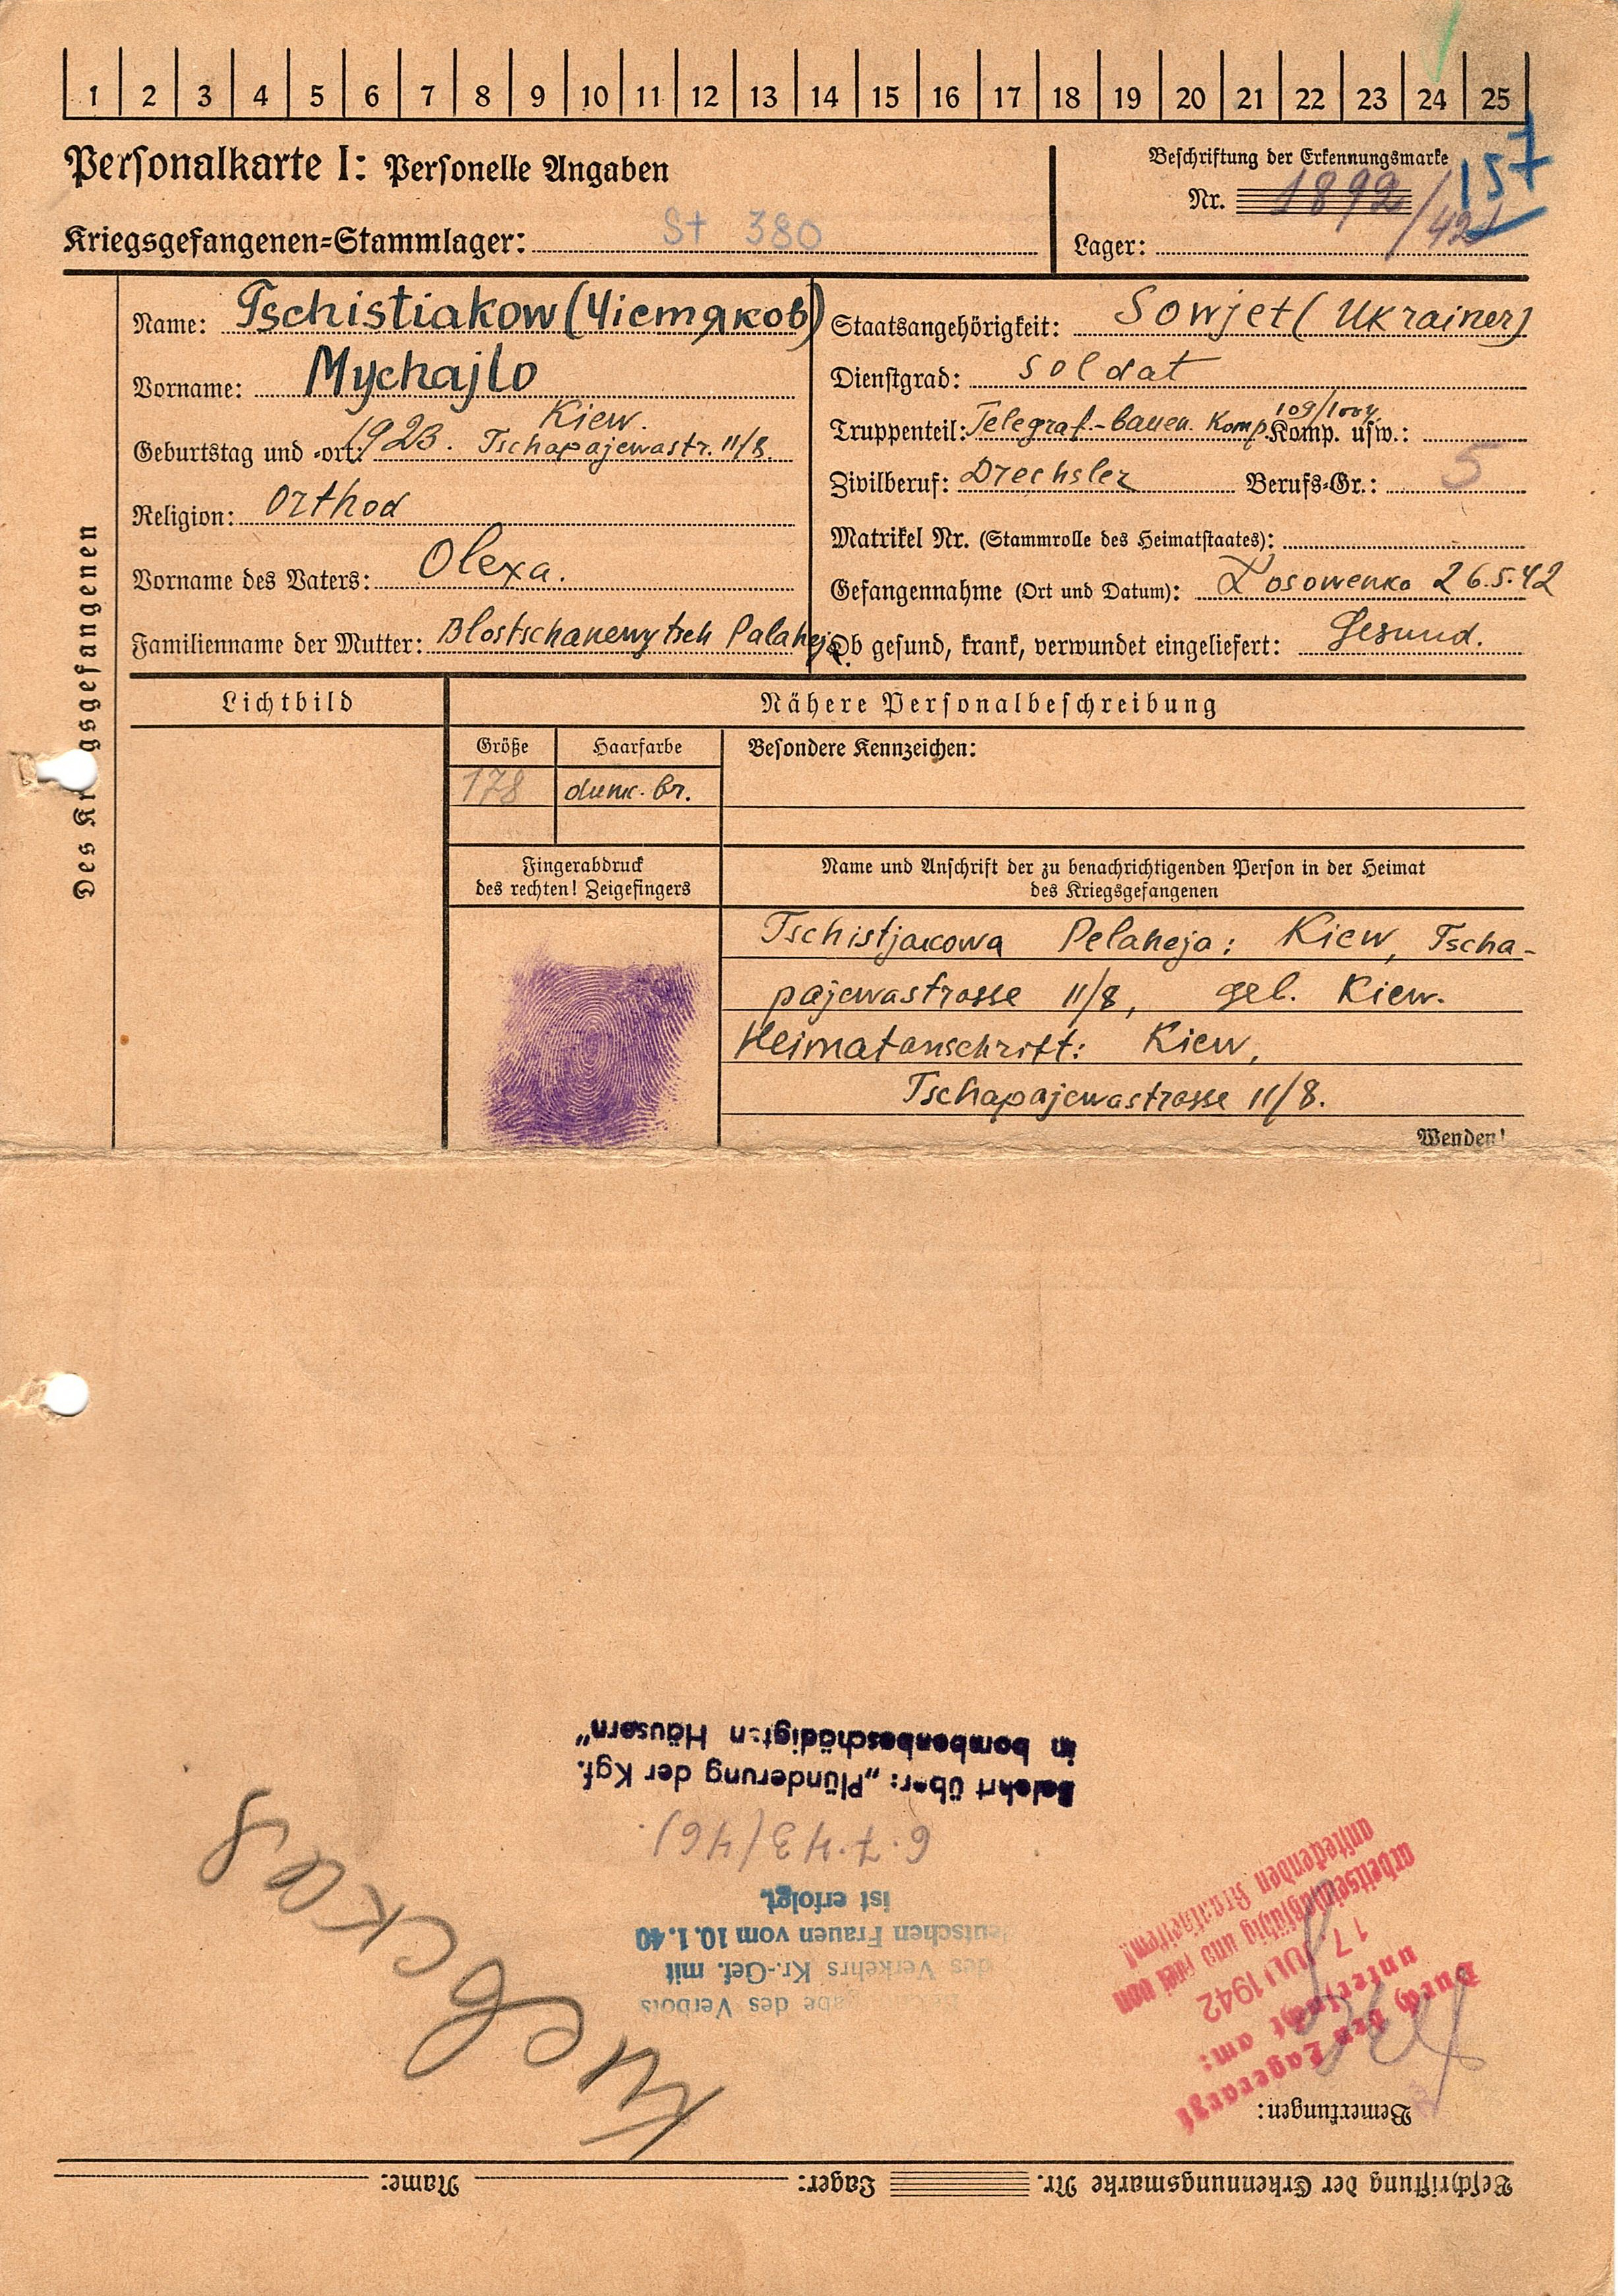 1 2 3 4 5 6 7 8 9 10 11 12 13 14 15 16 17 18 19 20 21 22 23 24 25
Personalkarte I: Personelle Angaben
Beschriftung der Erkennungsmarke
157
Nr. 1892/42
Kriegsgefangenen=Stammlager: St 380
Lager:
Des Kr gsgefangenen
Name: Tschistiakow (Чiстяков)
Vorname: Mychajlo
Kiew.
Geburtstag und =ort: 1923. Tschapajewastr. 11/8.
Religion: Orthod
Vorname des Vaters: Olexa.
Familienname der Mutter: Blostschanewytsch Palaheja.
Staatsangehörigkeit: Sowjet (Ukrainer)
Dienstgrad: soldat
Truppenteil: Telegraf.-bauen. Komp. Komp. usw.:
Zivilberuf: Drechsler Berufs=Gr.: 5
Matrikel Nr. (Stammrolle des Heimatstaates):
Gefangennahme (Ort und Datum): Losowenka 26.5.42
Ob gesund, krank, verwundet eingeliefert: Gesund.
Lichtbild
Nähere Personalbeschreibung
Größe Haarfarbe Besondere Kennzeichen:
178 dunk. br.
Fingerabdruck
des rechten! Zeigefingers
Name und Anschrift der zu benachrichtigenden Person in der Heimat
des Kriegsgefangenen
Tschistjakowa Pelaheja: Kiew, Tscha-
pajewastrasse 11/8, geb. Kiew.
Heimatanschrift: Kiew,
Tschapajewastrasse 11/8.
Wenden!
Beschriftung der Erkennungsmarke Nr. Lager: Name:
Bemerkungen:
Durch den Lagerarzt
untersucht am:
17 JULI 1942
arbeitseinsatzfähig und frei von
ansteckenden Krankheiten!
gabe des Verbots
des Verkehrs Kr.-Gef. mit
deutschen Frauen vom 10.1.40
ist erfolgt.
6.7.43 (46).
Belehrt über: „Plünderung der Kgf.
in bombenbeschädigten Häusern"
Киевская